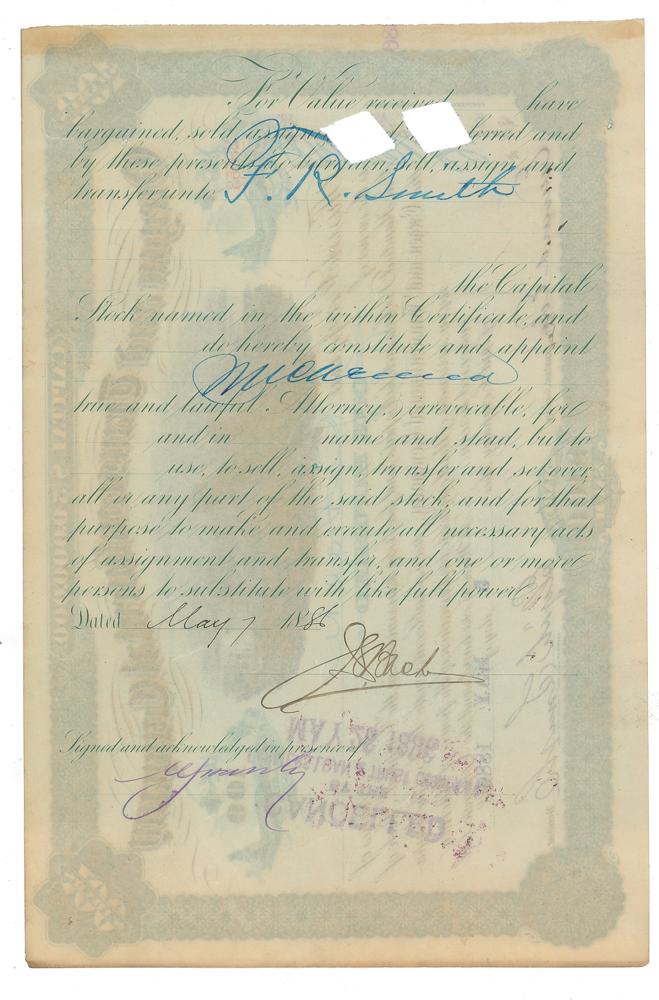 For Value received have
bargained, sold, assigned ferred and
by these presents do bargain, sell, assign and
transfer unto F. R. Smith
the Capital
Stock named in the within Certificate, and
do hereby constitute and appoint
true and lawful Attorney, irrevocable, for
and in name and stead, but to
use, to sell, assign, transfer and set over,
all or any part of the said stock, and for that
purpose to make and execute all necessary acts
of assignment and transfer, and one or more
persons to substitute with like full power.
Dated May 7 1886
Signed and acknowledged in presence of
MAY 28 1886
CANCELLED